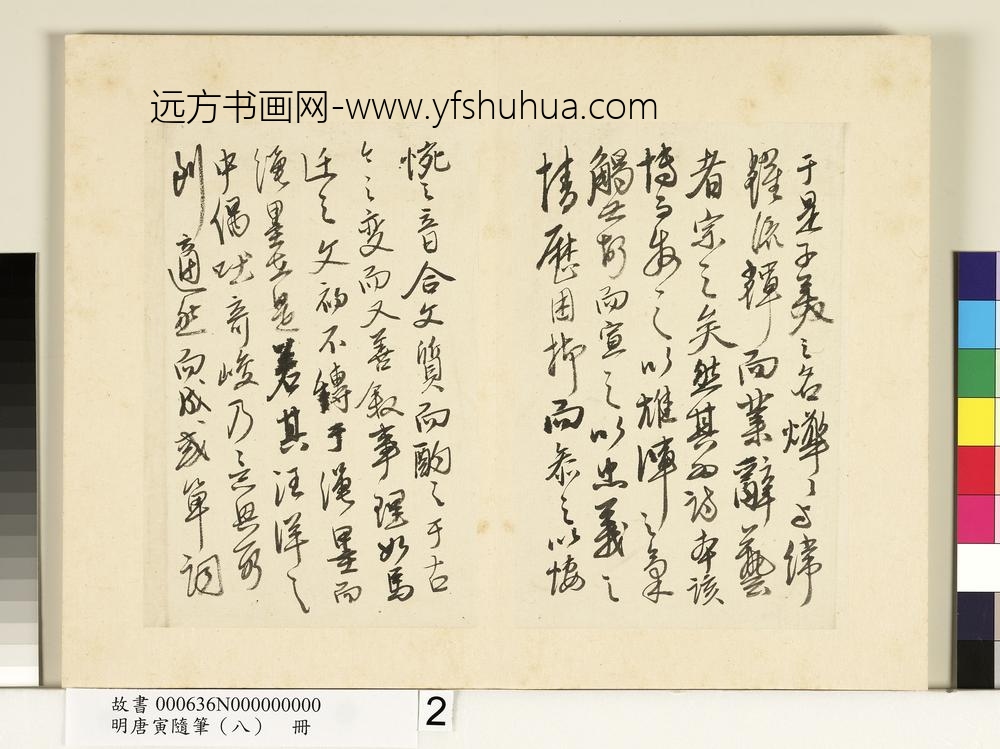 远方书画网-www.yfshuhua.com
于是子美之名爗爗与緯
籠流輝而業辭藝
者宗之矣然其為詩本該
博而数之以雄渾之氣
觸出形而宣之以忠義之
情歷困抑而忝之以悽
惋之音合文質而酌之于古
今之变而又善叙事理如馬
迁之文初不縛于渔墨而
渔墨在是若其汪洋之
中偶吐奇峻乃意興所
到適然而成或单词
故書 000636N000000000
明唐寅隨筆（八） 冊
2